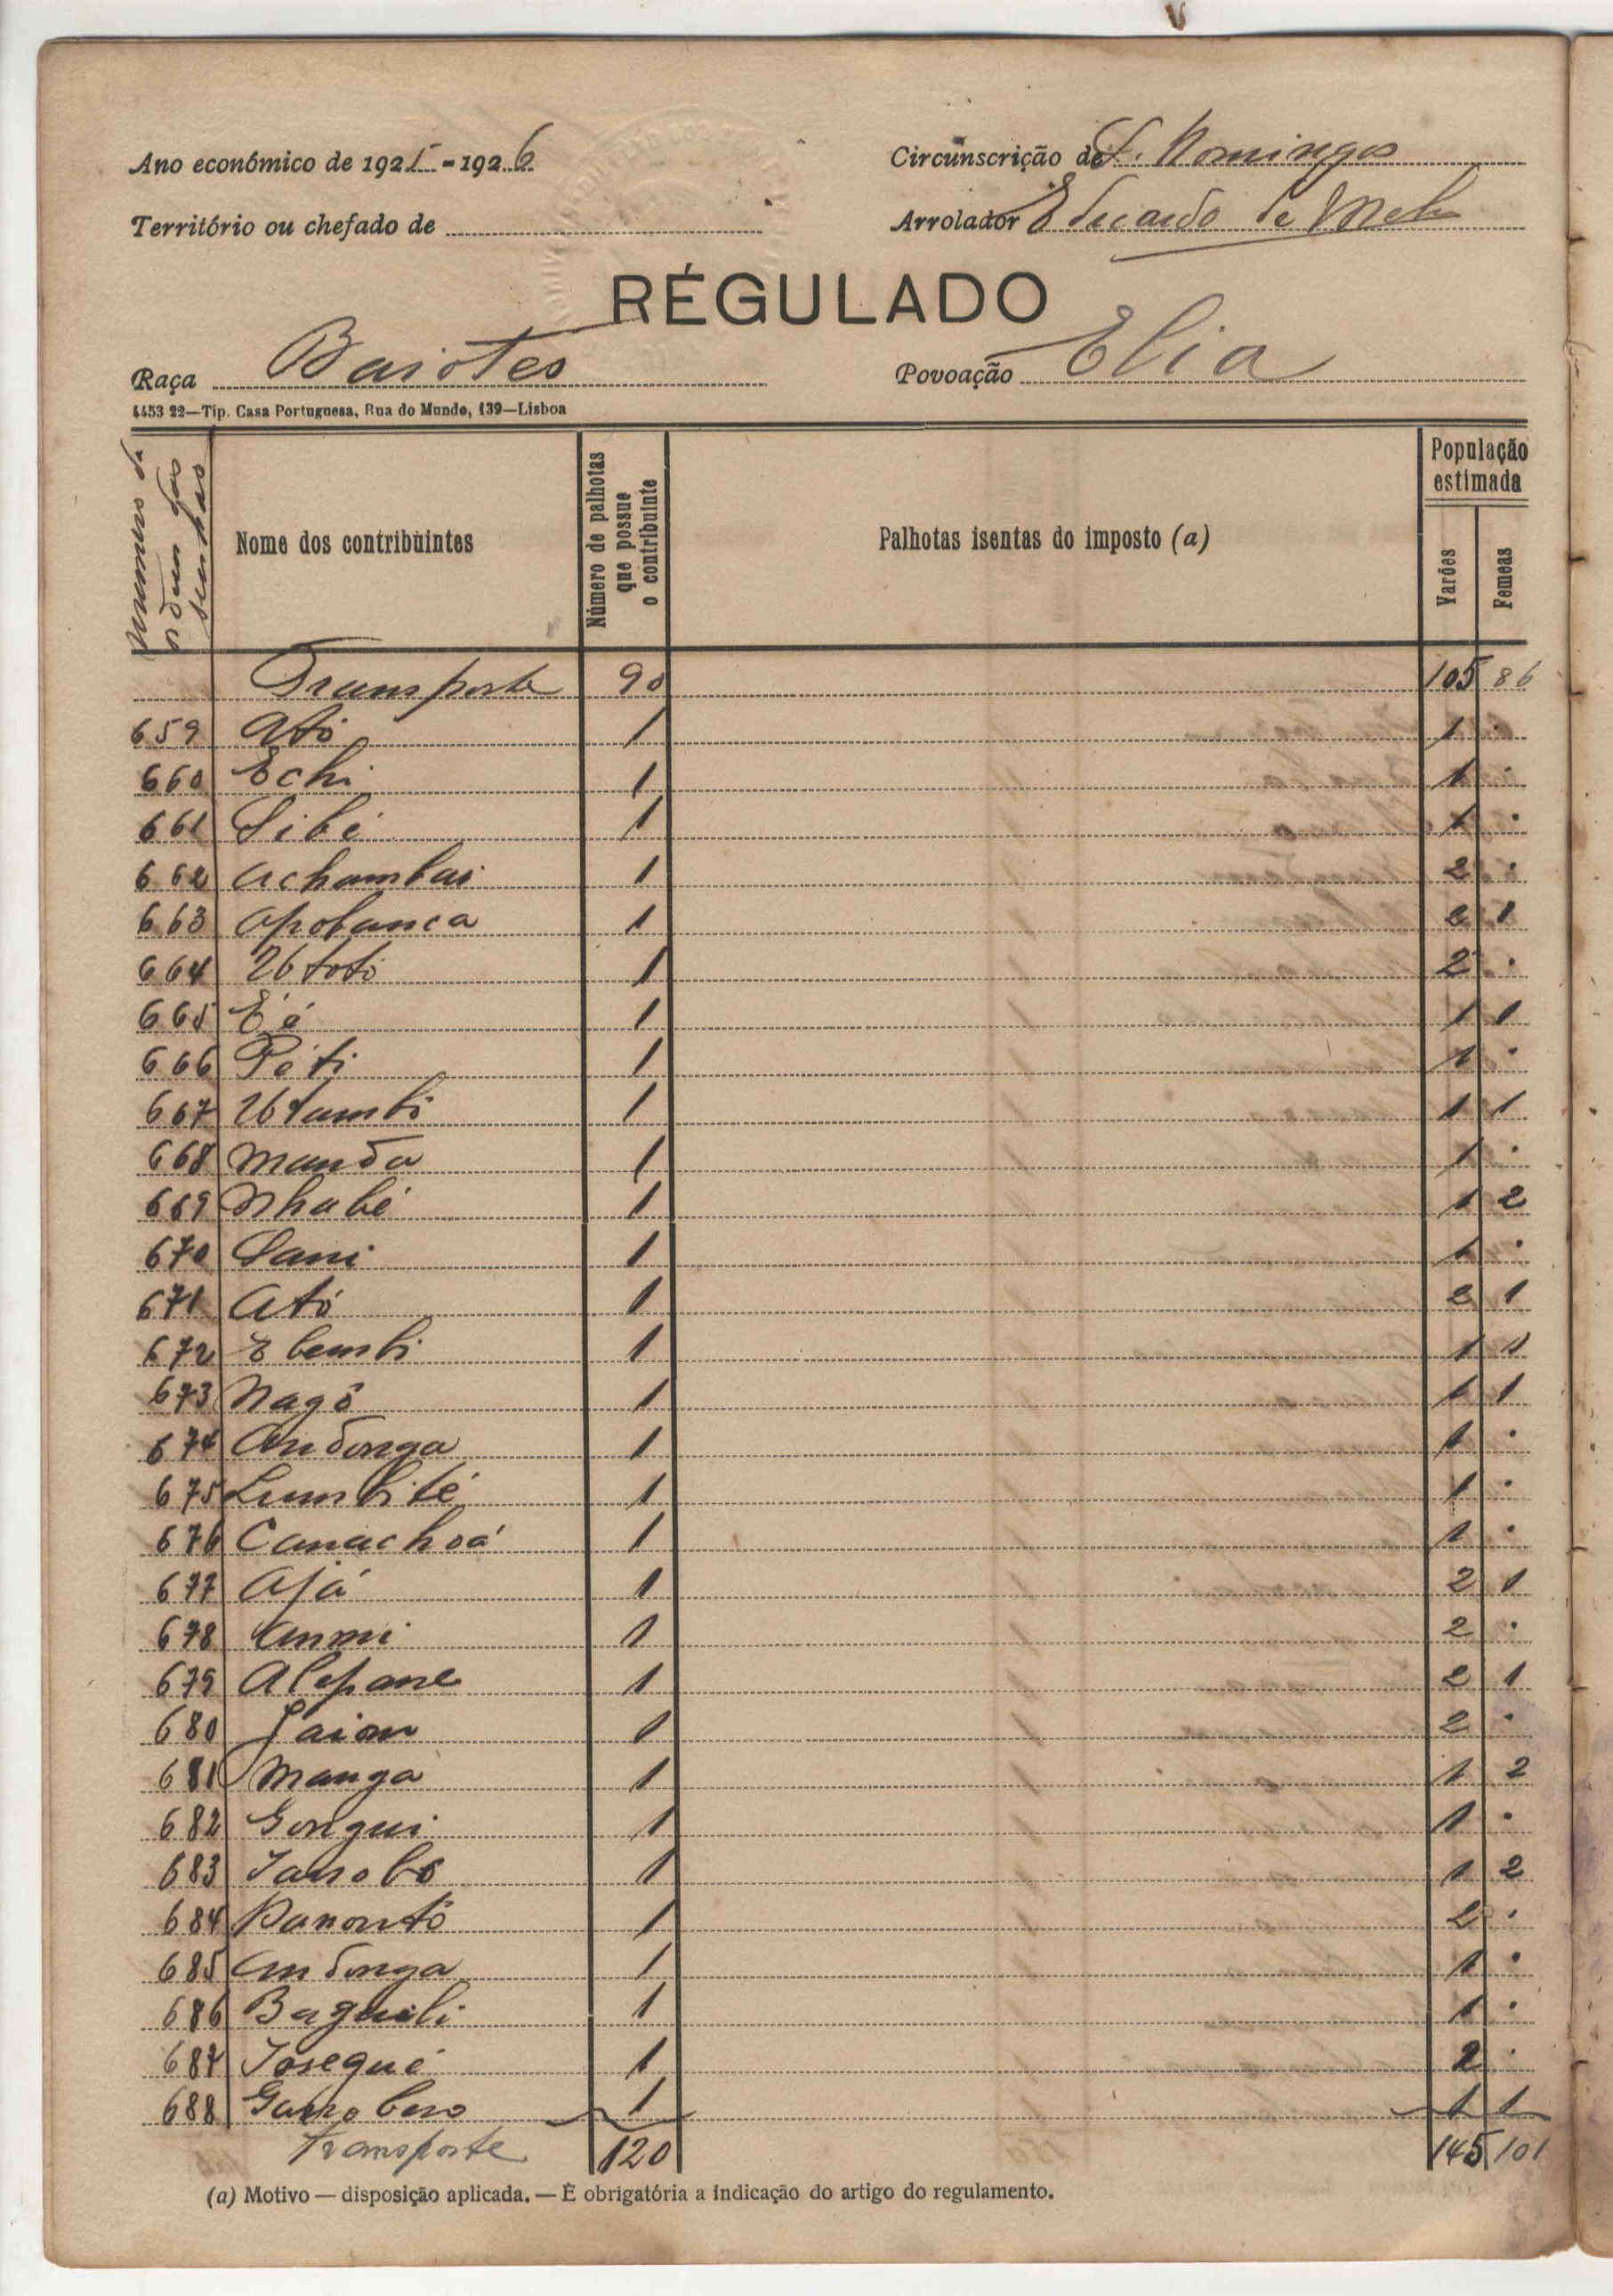 Ano económico de 1925-1926
Circunscrição de S. Domingos
Território ou chefado de
Arrolador Eduardo de Melo
RÉGULADO
Raça Baiotes
Povoação Elia
4453 22—Tip. Casa Portuguesa, Rua do Mundo, 139—Lisboa
Numero de ordem das senhas
Nome dos contribuintes
Número de palhotas que possue o contribuinte
Palhotas isentas do imposto (a)
População estimada
Varões
Femeas
Transporte 90 105 86
659 Ató 1 1 .
660 Echi 1 1 .
661 Sibé 1 1 .
662 Achambai 1 2 .
663 Apobanca 1 2 1
664 1 2 .
665 Éé 1 1 1
666 Péti 1 1 .
667 1 1 1
668 Manda 1 1 .
669 Nhabé 1 1 2
670 Sani 1 1 .
671 Ató 1 2 1
672 Ebembi 1 1 1
673 Nagô 1 1 1
674 Andonga 1 1 .
675 Lumbité 1 1 .
676 Canachoá 1 1 .
677 Ajá 1 2 1
678 Anmi 1 2 .
679 Alepane 1 2 1
680 Jaiom 1 2 .
681 Manga 1 1 2
682 Gongui 1 1 .
683 1 1 2
684 Panontó 1 2 .
685 Andonga 1 1 .
686 Baguili 1 1 .
687 Josequé 1 2 .
688 1 1 1
Transporte 120 145 101
(a) Motivo — disposição aplicada. — É obrigatória a indicação do artigo do regulamento.